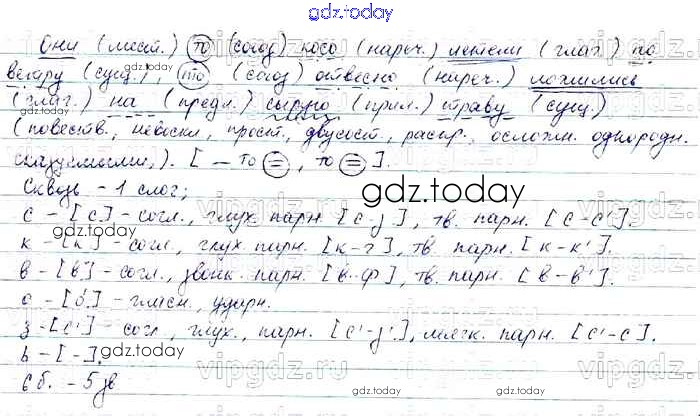 gdz.today
Они (мест.) то (союз) косо (нареч.) летели (глаг.) по
ветру (сущ.), то (союз) отвесно (нареч.) ложились
(глаг.) на (предл.) сырую (прил.) траву (сущ.)
gdz.today
(повеств., невоскл., прост., двусост., распр., осложн. однородн.
сказуемыми,). [ – то =, то = ].
gdz.today
Сквозь – 1 слог;
gdz.today
с – [с] – согл., глух. парн. [с-j], тв. парн. [с-с'].
к – [к] – согл., глух. парн. [к-г], тв. парн. [к-к'].
gdz.today
в – [в] – согл., звонк. парн. [в-ф], тв. парн. [в-в'].
о – [о́] – гласн., ударн.
з – [с'] – согл., глух., парн. [с'-j'], мягк. парн. [с'-с].
ь – [-].
gdz.today
6 б. – 5 зв
gdz.today
gdz.today
vipgdz.ru
vipgdz.ru
vipgdz.ru
vipgdz.ru